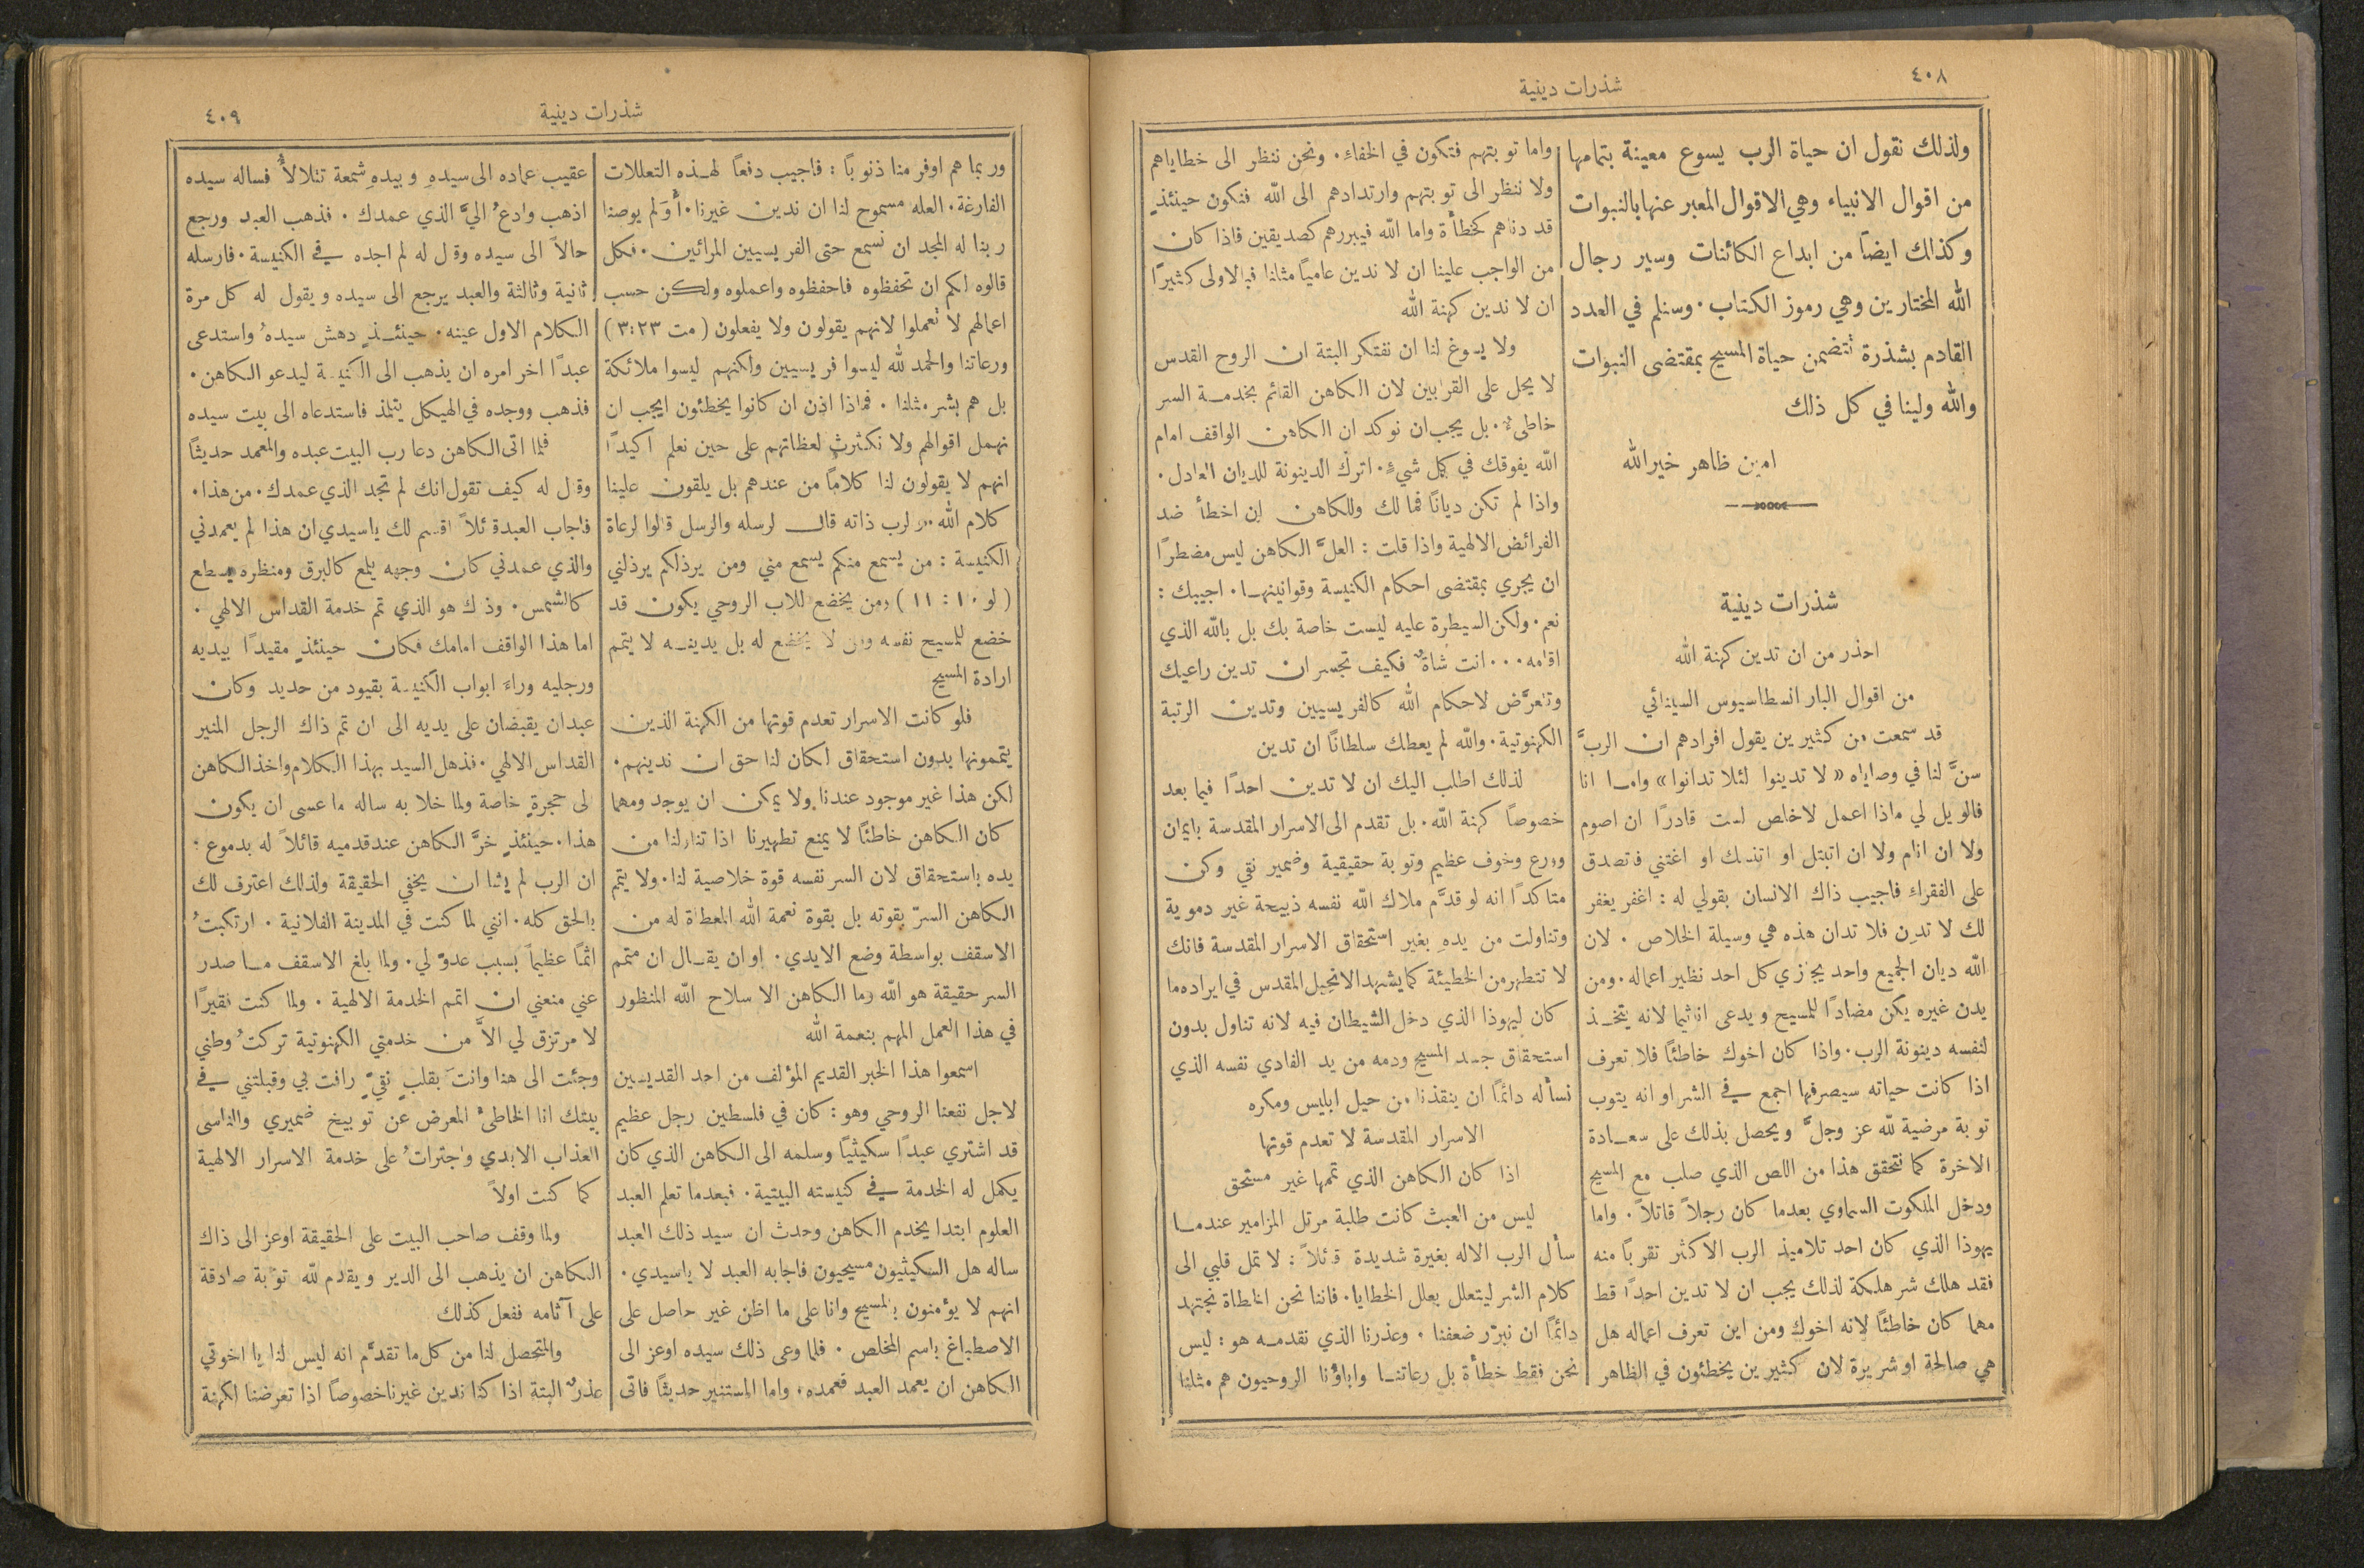 ٤٠٨
شذرات دينية
ولذلك نقول ان حياة الرب يسوع معينة بتمامها
من اقوال الانبياء وهي الاقوال المعبر عنها بالنبوات
وكذلك ايضاً من ابداع الكائنات وسير رجال
الله المختارين وهي رموز الكتاب. وسنلم في العدد
القادم بشذرة تتضمن حياة المسيح بمقتضى النبوات
والله ولينا في كل ذلك
امين ظاهر خيرالله
شذرات دينية
احذر من ان تدين كهنة الله
من اقوال البار انسطاسيوس السينائي
قد سمعت من كثيرين يقول افرادهم ان الربَّ
سنَّ لنا في وصاياه «لا تدينوا لئلا تدانوا» واما انا
فالويل لي ماذا اعمل لاخلص لست قادرًا ان اصوم
ولا ان انام ولا ان اتبتل او اتنسك او اغتني فاتصدق
على الفقراء فاجيب ذاك الانسان بقولي له: اغفر يغفر
لك لا تدِن فلا تدان هذه هي وسيلة الخلاص. لان
الله ديان الجميع واحد يجازي كل احد نظير اعماله. ومن
يدن غيره يكن مضادًا للمسيح ويدعى انتيما لانه يتخذ
لنفسه دينونة الرب. واذا كان اخوك خاطئًا فلا تعرف
اذا كانت حياته سيصرفها اجمع في الشر او انه يتوب
توبة مرضية لله عز وجلَّ ويحصل بذلك على سعادة
الاخرة كما نتحقق هذا من اللص الذي صلب مع المسيح
ودخل الملكوت السماوي بعدما كان رجلاً قاتلاً. واما
يهوذا الذي كان احد تلاميذ الرب الاكثر تقربًا منه
فقد هلك شر هلكة لذلك يجب ان لا تدين احدًا قط
مهما كان خاطئًا لانه اخوك ومن اين تعرف اعماله هل
هي صالحة او شريرة لان كثيرين يخطئون في الظاهر
واما توبتهم فتكون في الخفاء. ونحن ننظر الى خطاياهم
ولا ننظر الى توبتهم وارتدادهم الى الله فنكون حينئذٍ
قد دناهم كخطأة واما الله فيبررهم كصديقين فاذا كان
من الواجب علينا ان لا ندين عاميًا مثلنا فبالاولى كثيرًا
ان لا ندين كهنة الله
ولا يسوغ لنا ان نفتكر البتة ان الروح القدس
لا يحل على القرابين لان الكاهن القائم بخدمة السر
خاطئٌ. بل يجب ان نوكد ان الكاهن الواقف امام
الله يفوقك في كل شيءٍ. اترك الدينونة للديان العادل.
واذا لم تكن ديانًا فما لك وللكاهن ان اخطأ ضد
الفرائض الالهية واذا قلت: العلَّ الكاهن ليس مضطرًا
ان يجري بمقتضى احكام الكنيسة وقوانينها. اجيبك:
نعم. ولكن السيطرة عليه ليست خاصة بك بل بالله الذي
اقامه... انت شاةٌ فكيف تجسر ان تدين راعيك
وتتعرَّض لاحكام الله كالفريسيين وتدين الرتبة
الكهنوتية. والله لم يعطك سلطانًا ان تدين
لذلك اطلب اليك ان لا تدين احدًا فيما بعد
خصوصًا كهنة الله. بل تقدم الى الاسرار المقدسة بايمان
وورع وخوف عظيم وتوبة حقيقية وضمير نقي وكن
متاكدًا انه لو قدَّم ملاك الله نفسه ذبيحة غير دموية
وتناولت من يدهِ بغير استحقاق الاسرار المقدسة فانك
لا تتطهر من الخطيئة كما يشهد الانجيل المقدس في ايراده ما
كان ليهوذا الذي دخل الشيطان فيه لانه تناول بدون
استحقاق جسد المسيح ودمه من يد الفادي نفسه الذي
نسأله دائمًا ان ينقذنا من حيل ابليس ومكره
الاسرار المقدسة لا تعدم قوتها
اذا كان الكاهن الذي تممها غير مستحق
ليس من العبث كانت طلبة مرتل المزامير عندما
سأل الرب الاله بغيرة شديدة قائلاً: لا تمل قلبي الى
كلام الشر ليتعلل بعلل الخطايا. فاننا نحن الخطاة نجتهد
دائمًا ان نبرّر ضعفنا. وعذرنا الذي نقدمه هو: ليس
نحن فقط خطأة بل رعاتنا واباؤنا الروحيون هم مثلنا
شذرات دينية
٤٠٩
وربما هم اوفر منا ذنوبًا: فاجيب دفعًا لهذه التعللات
الفارغة. العله مسموح لنا ان ندين غيرنا. أَوَلم يوصنا
ربنا له المجد ان نسمع حتى الفريسيين المرائين. فكل
قالوه لكم ان تحفظوه فاحفظوه واعملوه ولكن حسب
اعمالهم لا تعملوا لانهم يقولون ولا يفعلون (مت ٢٣:٣)
ورعاتنا والحمد لله ليسوا فريسيين ولكنهم ليسوا ملائكة
بل هم بشر مثلنا. فماذا اذن ان كانوا يخطئون ايجب ان
نهمل اقوالهم ولا نكترث لعظاتهم على حين نعلم اكيدًا
انهم لا يقولون لنا كلامًا من عندهم بل يلقون علينا
كلام الله والرب ذاته قال لرسله والرسل قالوا لرعاة
الكنيسة: من يسمع منكم يسمع مني ومن يرذلكم يرذلني
(لو ١٠: ١١) ومن يخضع للاب الروحي يكون قد
خضع للمسيح نفسه ومن لا يخضع له بل يدينه لا يتمم
ارادة المسيح
فلو كانت الاسرار تعدم قوتها من الكهنة الذين
يتممونها بدون استحقاق لكان لنا حق ان ندينهم.
لكن هذا غير موجود عندنا ولا يمكن ان يوجد ومهما
كان الكاهن خاطئًا لا يمنع تطهيرنا اذا تناولنا من
يده باستحقاق لان السر نفسه قوة خلاصية لنا. ولا يتمم
الكاهن السرّ بقوته بل بقوة نعمة الله المعطاة له من
الاسقف بواسطة وضع الايدي. او ان يقال ان متمم
السر حقيقة هو الله وما الكاهن الا سلاح الله المنظور
في هذا العمل المهم بنعمة الله
اسمعوا هذا الخبر القديم المؤلف من احد القديسين
لاجل نفعنا الروحي وهو: كان في فلسطين رجل عظيم
قد اشترى عبدًا سكيثيًا وسلمه الى الكاهن الذي كان
يكمل له الخدمة في كنيسته البيتية. فبعدما تعلم العبد
العلوم ابتدا يخدم الكاهن وحدث ان سيد ذلك العبد
ساله هل السكيثيون مسيحيون فاجابه العبد لا ياسيدي.
انهم لا يؤمنون بالمسيح وانا على ما اظن غير حاصل على
الاصطباغ باسم المخلص. فلما وعى ذلك سيده اوعز الى
الكاهن ان يعمد العبد فعمده. واما المستنير حديثًا فاتى
عقيب عماده الى سيدهِ وبيدهِ شمعة تتلألأُ فساله سيده
اذهب وادعُ اليَّ الذي عمدك. فذهب العبد ورجع
حالاً الى سيده وقال له لم اجده في الكنيسة. فارسله
ثانية وثالثة والعبد يرجع الى سيده ويقول له كل مرة
الكلام الاول عينه. حينئذٍ دهش سيدهُ واستدعى
عبدًا اخر امره ان يذهب الى الكنيسة ليدعو الكاهن.
فذهب ووجده في الهيكل يتلمذ فاستدعاه الى بيت سيده
فلما اتى الكاهن دعا رب البيت عبده والمعمد حديثًا
وقال له كيف تقول انك لم تجد الذي عمدك. من هذا.
فاجاب العبد قائلاً اقسم لك ياسيدي ان هذا لم يعمدني
والذي عمدني كان وجهه يلمع كالبرق ومنظره يسطع
كالشمس. وذاك هو الذي تمم خدمة القداس الالهي.
اما هذا الواقف امامك فكان حينئذٍ مقيدًا بيديه
ورجليه وراءَ ابواب الكنيسة بقيود من حديد وكان
عبدان يقبضان على يديه الى ان تمم ذاك الرجل المنير
القداس الالهي. فذهل السيد بهذا الكلام واخذ الكاهن
الى حجرةٍ خاصة ولما خلا به ساله ما عسى ان يكون
هذا. حينئذٍ خرَّ الكاهن عند قدميه قائلاً له بدموع:
ان الرب لم يشا ان يخفي الحقيقة ولذلك اعترف لك
بالحق كله. انني لما كنت في المدينة الفلانية. ارتكبتُ
اثمًا عظيمًا بسبب عدوّ لي. ولما بلغ الاسقف ما صدر
عني منعني ان اتمم الخدمة الالهية. ولما كنت فقيرًا
لا مرتزق لي الاَّ من خدمتي الكهنوتية تركتُ وطني
وجئت الى هنا وانتَ بقلبٍ نقيٍّ رافت بي وقبلتني في
بيتك انا الخاطئُ المعرض عن توبيخ ضميري والناسى
العذاب الابدي واجترأتُ على خدمة الاسرار الالهية
كما كنت اولاً
ولما وقف صاحب البيت على الحقيقة اوعز الى ذاك
الكاهن ان يذهب الى الدير ويقدم لله توبة صادقة
على آثامه ففعل كذلك
والمتحصل لنا من كل ما تقدَّم انه ليس لنا يا اخوتي
عذرٌ البتة اذا كنا ندين غيرنا خصوصًا اذا تعرضنا لكهنة